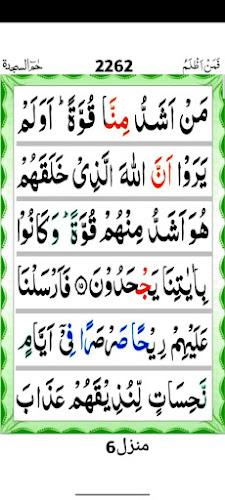 حٰمٓ السجدة 2262 فَمَنْ اَظْلَمُ
مَنْ اَشَدُّ مِنَّا قُوَّةً ؕ اَوَلَمْ
يَرَوْا اَنَّ اللّٰهَ الَّذِىْ خَلَقَهُمْ
هُوَ اَشَدُّ مِنْهُمْ قُوَّةً ؕ وَكَانُوْا
بِاٰيٰتِنَا يَجْحَدُوْنَ ۝۱۵ فَاَرْسَلْنَا
عَلَيْهِمْ رِيْحًا صَرْصَرًا فِىْۤ اَيَّامٍ
نَّحِسَاتٍ لِّنُذِيْقَهُمْ عَذَابَ
منزل6